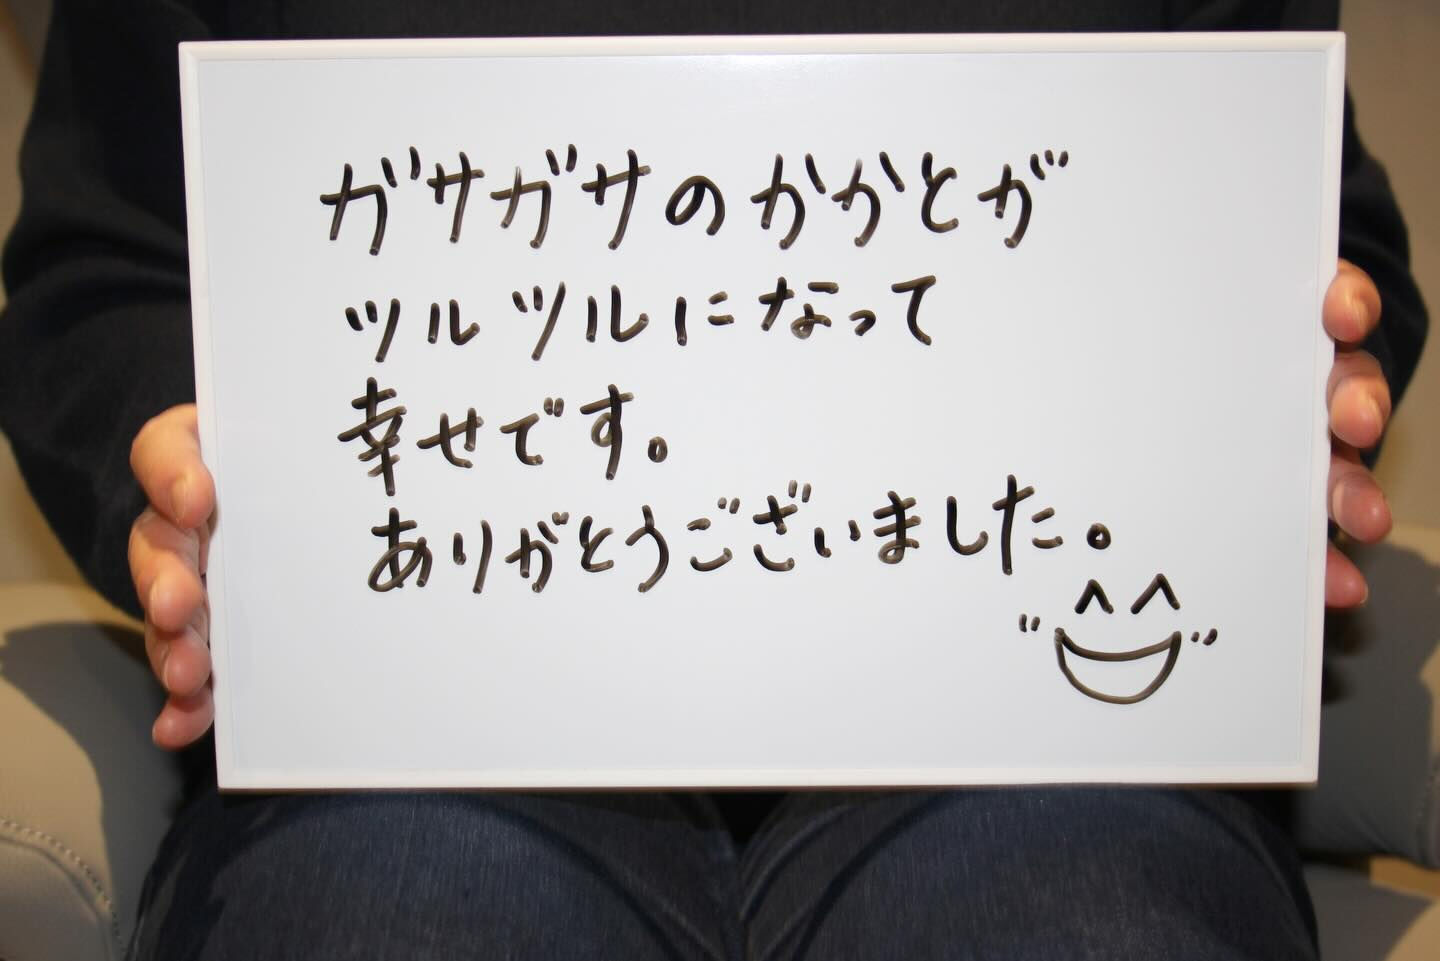 ガサガサのかかとが
ツルツルになって
幸せです。
ありがとうございました。